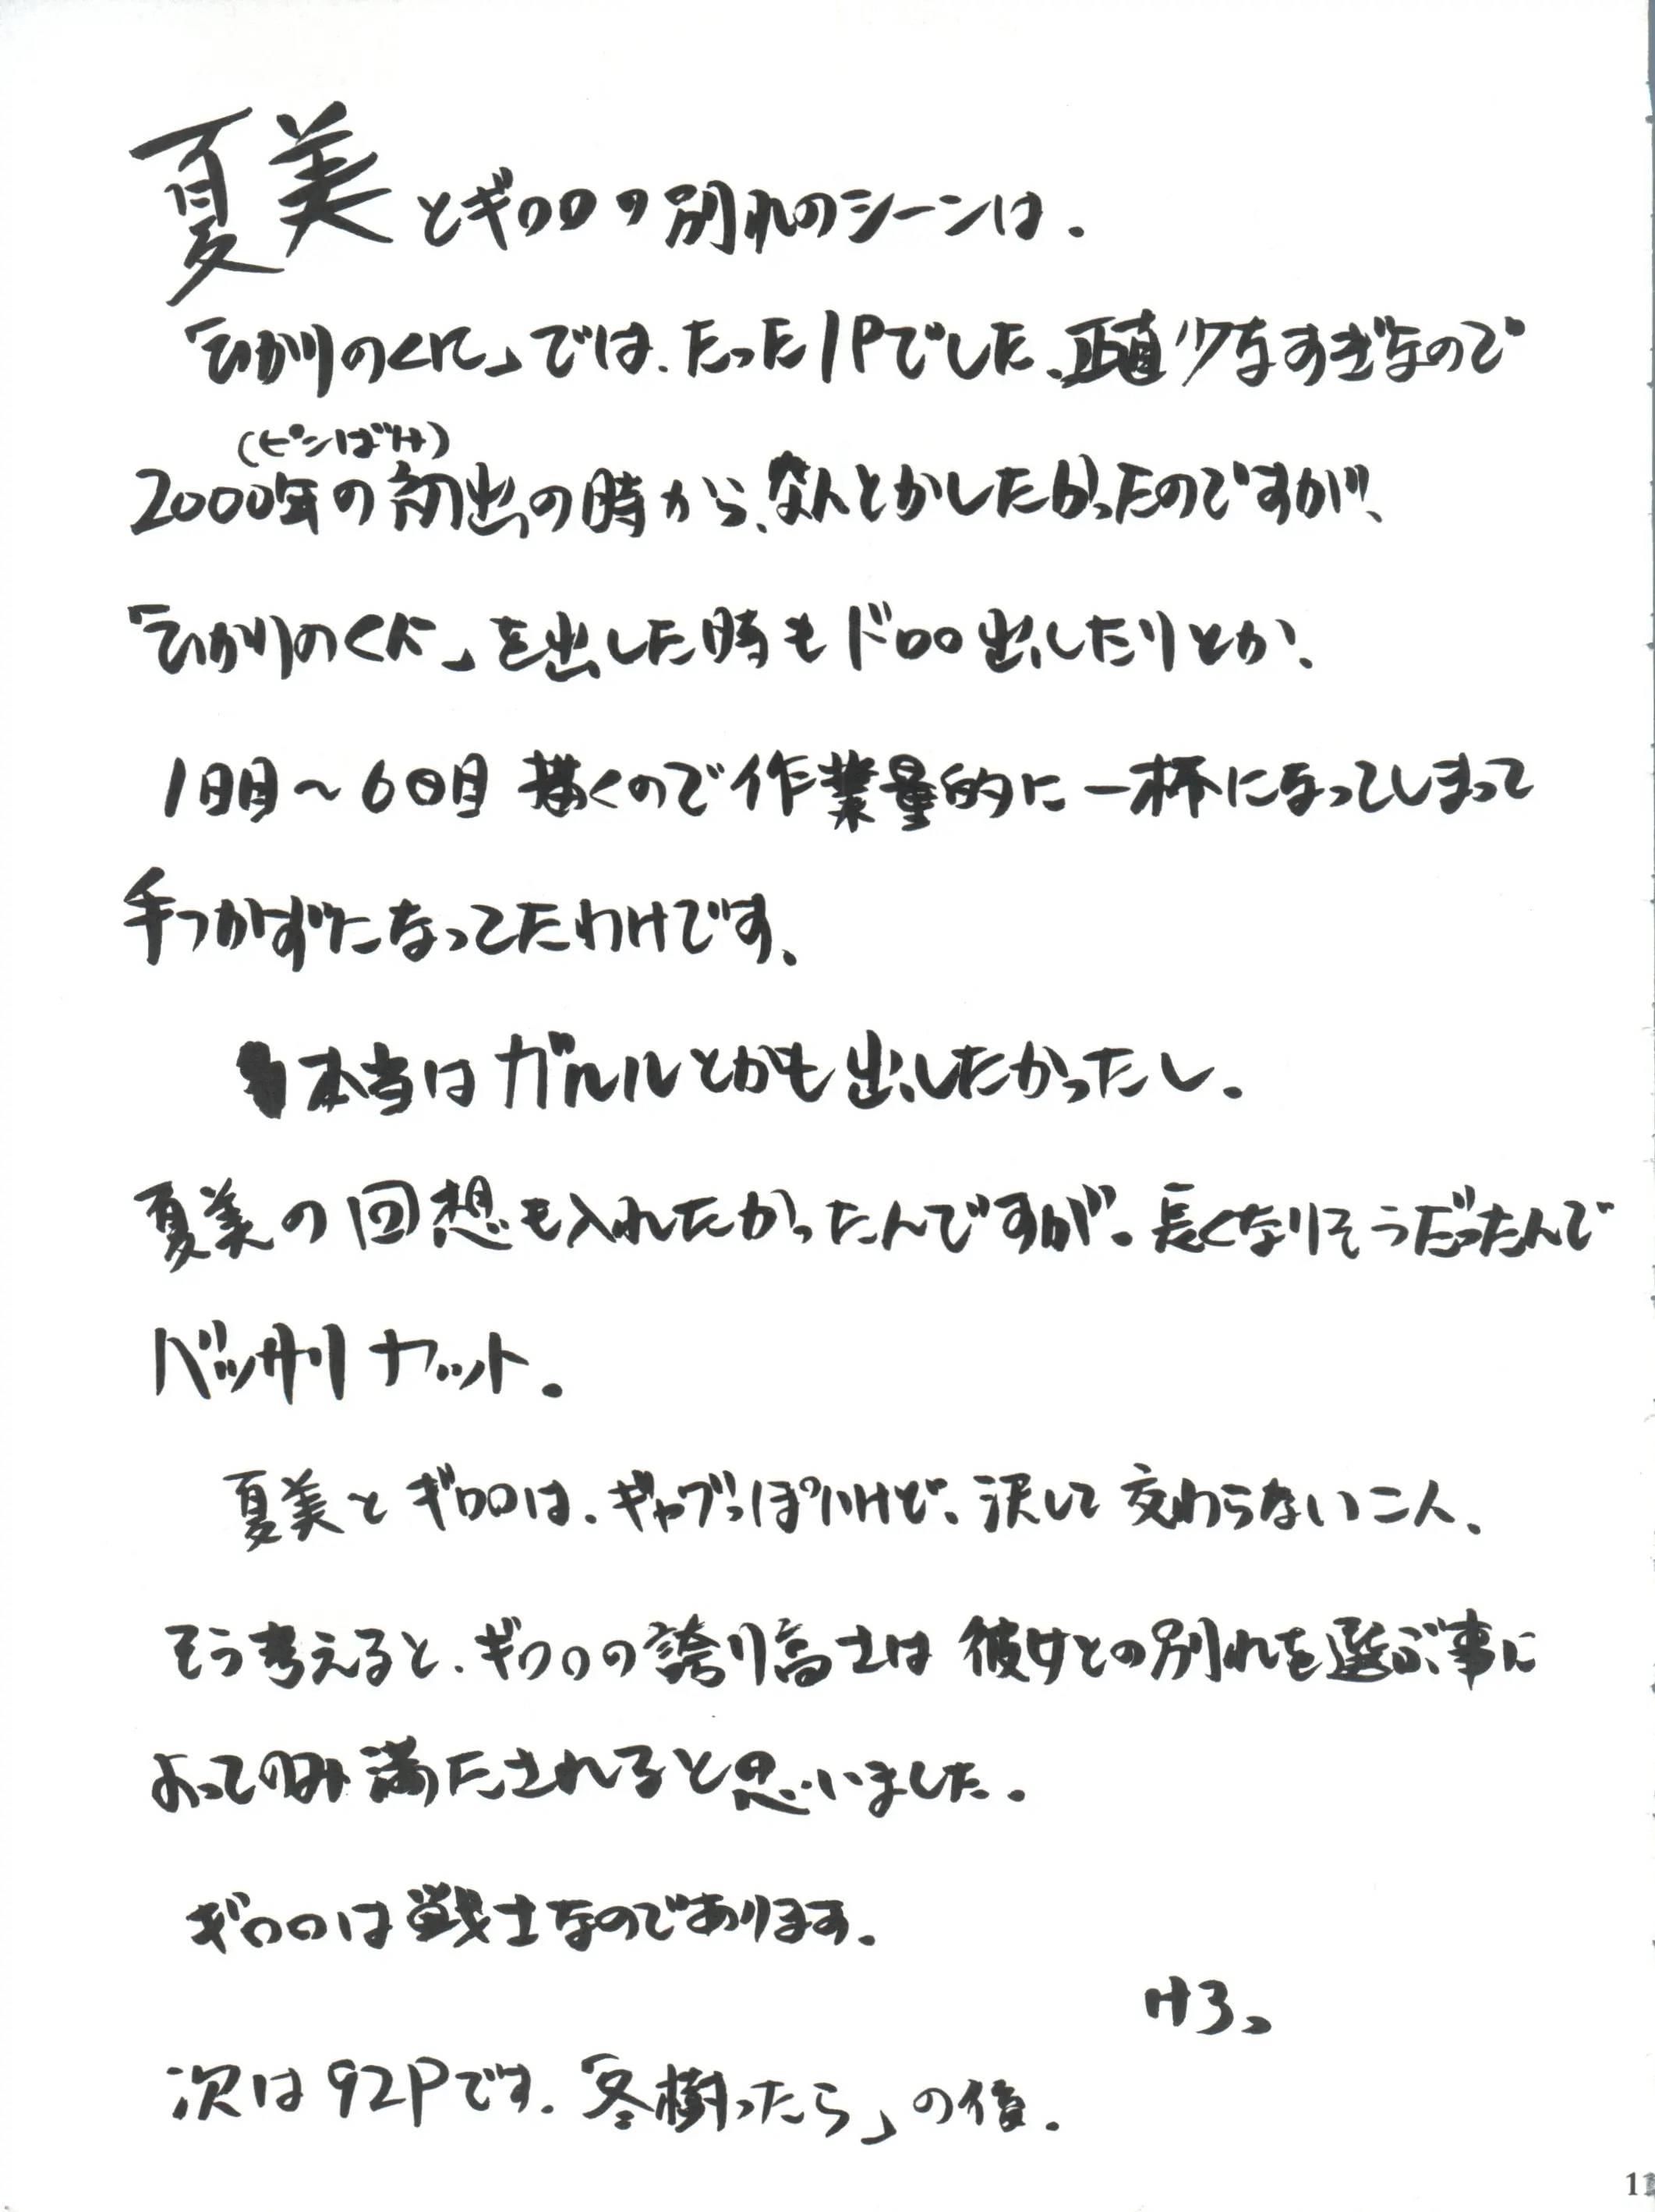 夏美とギロロの別れのシーンは.
「ひかりのくに」では、たった1Pでした、正直少なすぎなので
(ピンばけ)
2000年の初出の時から、なんとかしたかったのですが、
「ひかりのくに」を出した時もドロロ出したりとか、
1日目〜6日目 描くので作業量的に一杯になってしまって
手つかずになってたわけです、
本当はガルルとかも出したかったし.
夏美の回想も入れたかったんですが。長くなりそうだったんで
バッサリカット。
夏美とギロロは、ギャグっぽいけど、決して交わらない二人、
そう考えると、ギロロの誇り高さは彼女との別れを選ぶ事に
よってのみ満たされると思いました.
ギロロは戦士なのであります.
けろっ
次は92Pです.「冬樹ったら」の後.